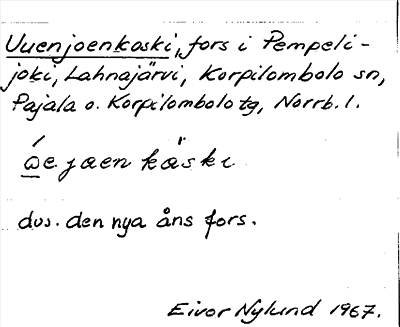 Uuenjoenkoski, fors i Pempeli-
joki, Lahnajärvi, Korpilombolo sn,
Pajala o. Korpilombolo tg, Norrb. l.
dvs. den nya åns fors.
Eivor Nylund 1967.